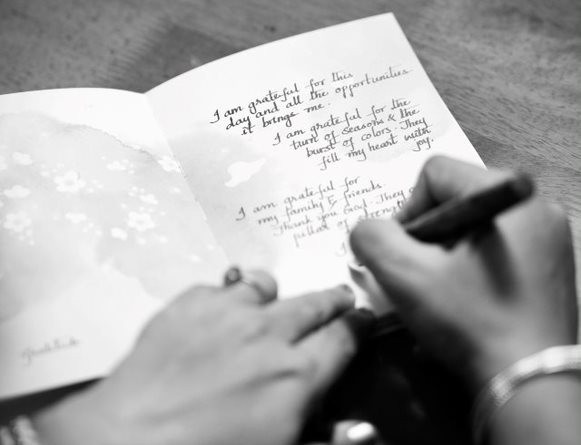 Gratitude
I am grateful for this
day and all the opportunities
it brings me.
I am grateful for the
turn of seasons & the
burst of colors. They
fill my heart with
joy.
I am grateful for
my family & friends.
Thank you God. They
pillar of strength